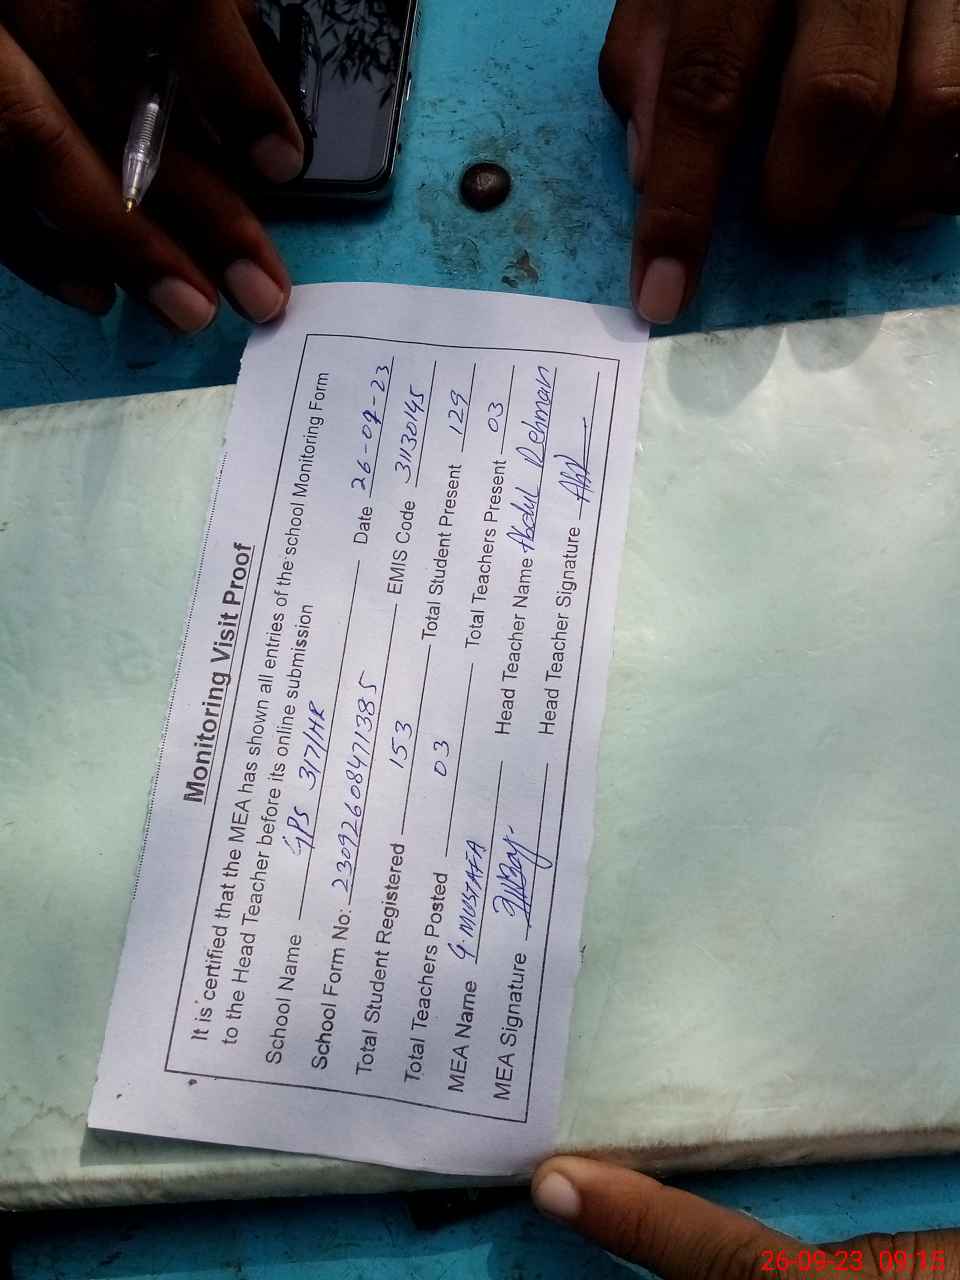 Monitoring Visit Proof
It is certified that the MEA has shown all entries of the school Monitoring Form
to the Head Teacher before its online submission
School Name GPS 317/HR Date 26-09-23
School Form No: 23092608471385 EMIS Code 31130145
Total Student Registered 153 Total Student Present 129
Total Teachers Posted 03 Total Teachers Present 03
MEA Name G. MUSTAFA Head Teacher Name Abdul Rehman
MEA Signature Head Teacher Signature
26-09-23 09:15